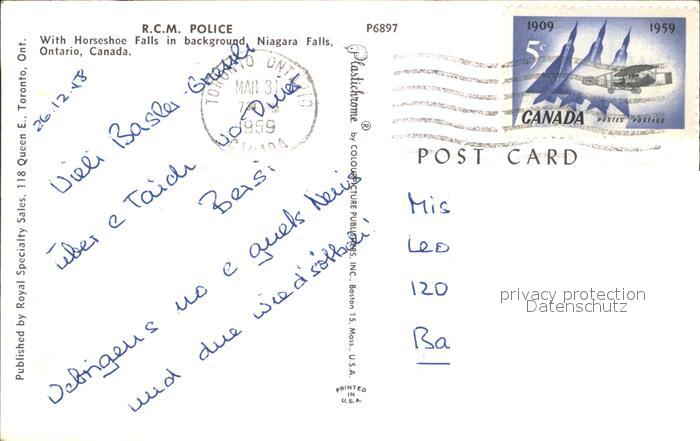 R.C.M. POLICE
With Horseshoe Falls in background, Niagara Falls,
Ontario, Canada.
P6897
Published by Royal Specialty Sales, 118 Queen E., Toronto, Ont.
26.12.58
Vieli Basler
über e Taich vo
no e guets
und
Plastichrome ® by COLOURPICTURE PUBLISHERS, INC., Boston 15, Mass., U.S.A.
PRINTED IN
U.S.A.
TORONTO ONTARIO
MAR 31
1959
CANADA
1909 1959
5c
CANADA POSTES POSTAGE
POST CARD
Mis
Leo
120
Ba
privacy protection
Datenschutz